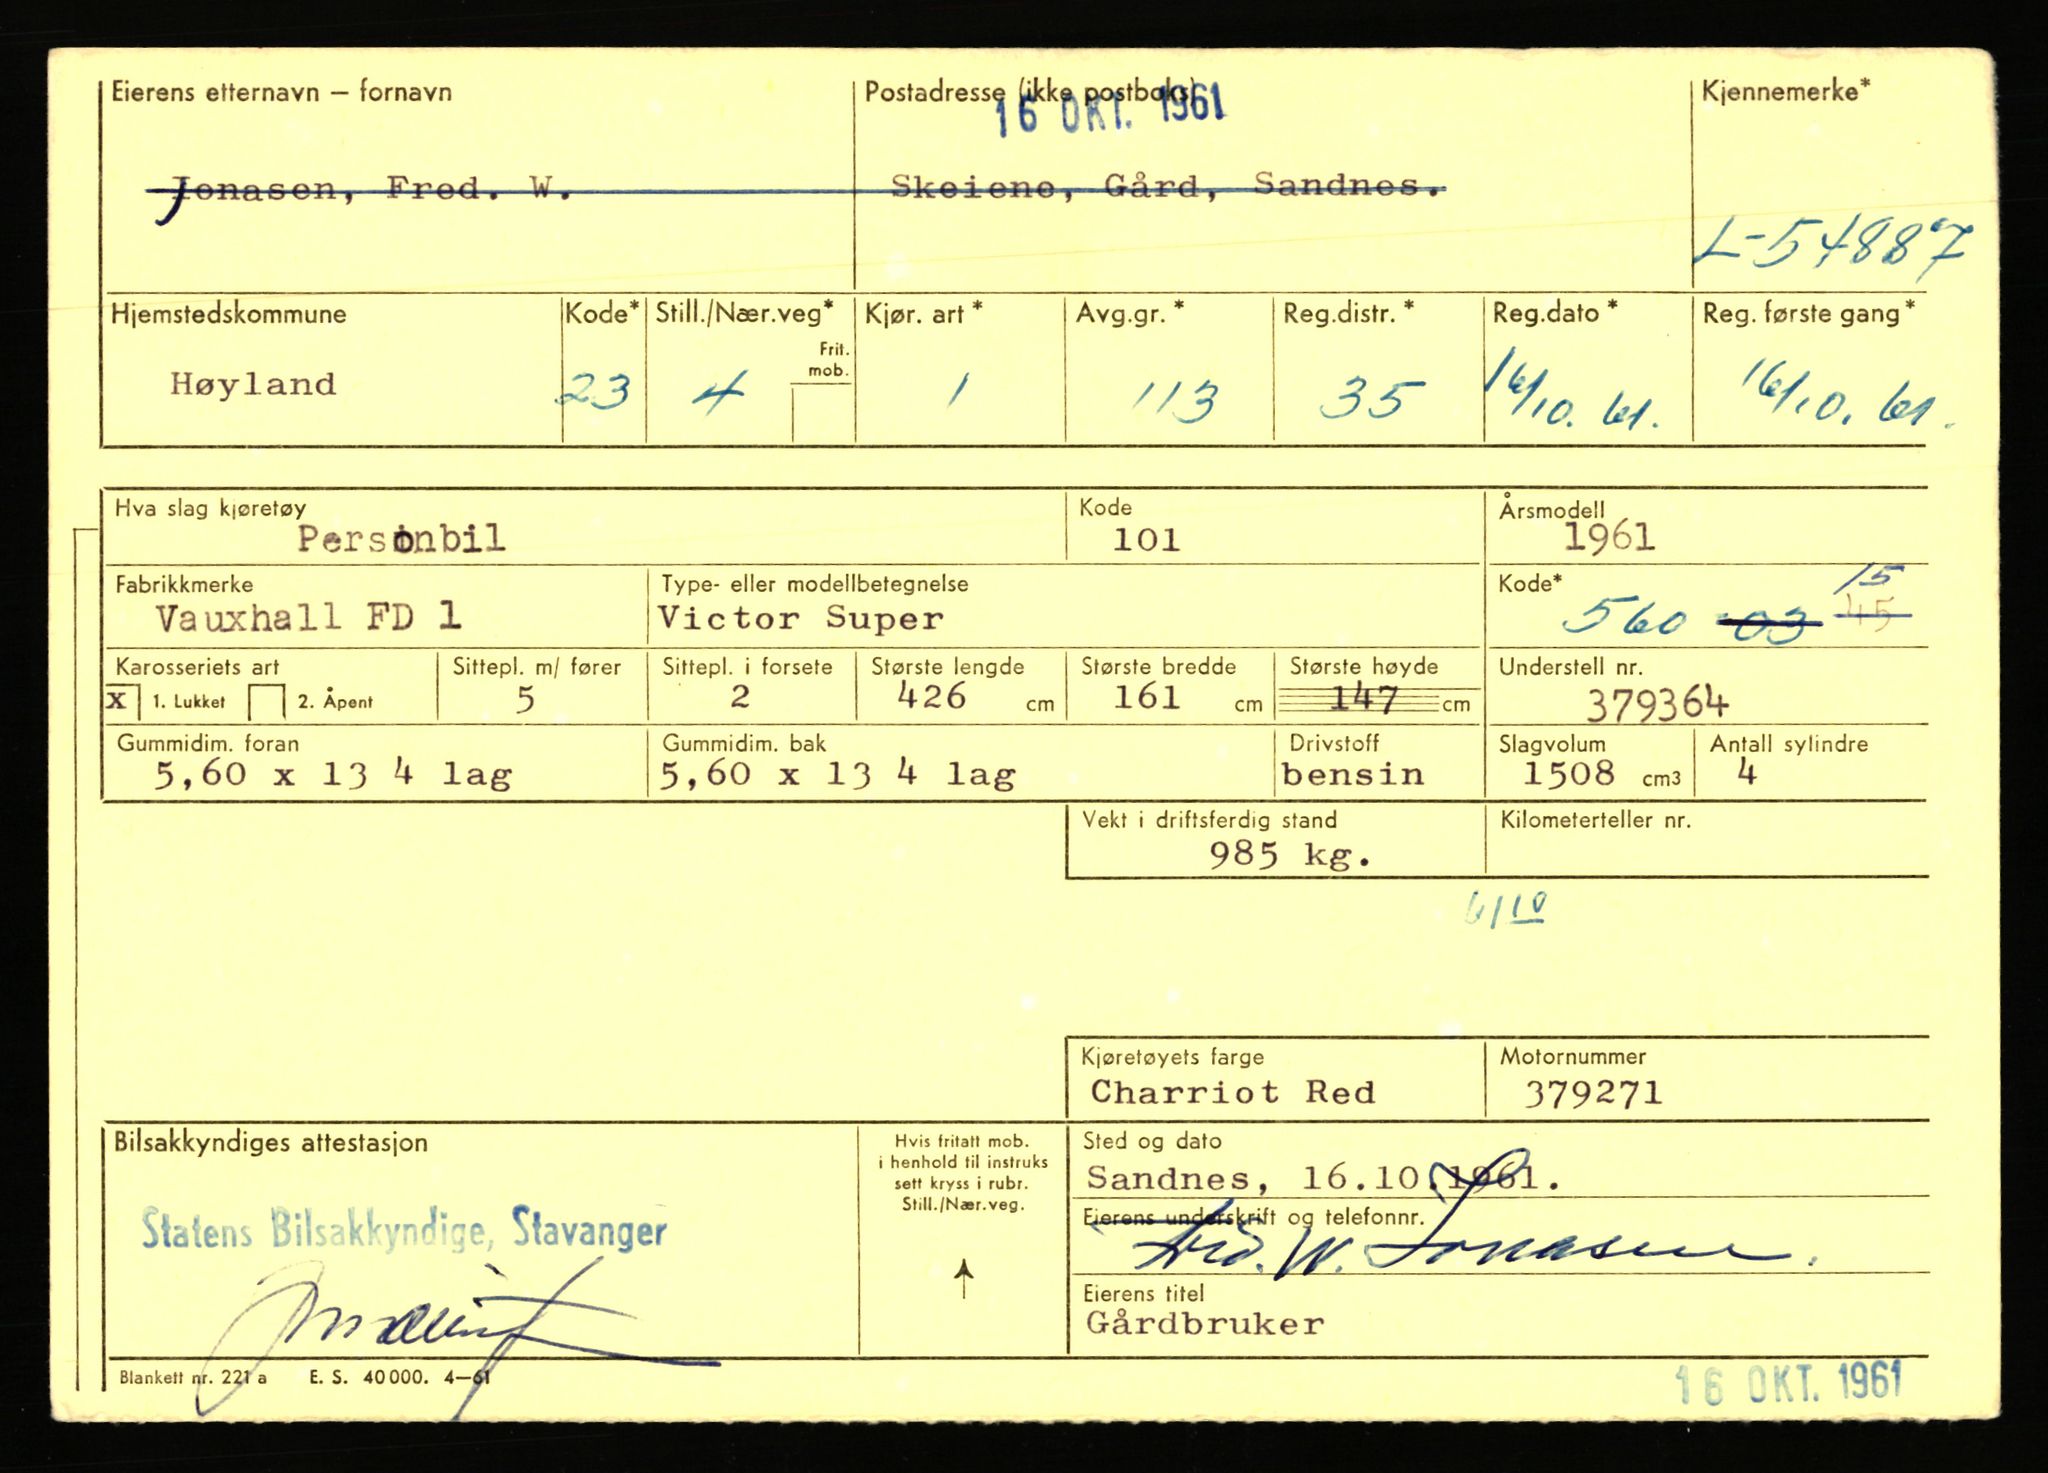 Eierens etternavn – fornavn Postadresse (ikke postboks) Kjennemerke*
16 OKT. 1961
Jonasen, Fred. W. Skeiene, Gård, Sandnes.
L-54887
Hjemstedskommune Kode* Still./Nær.veg* Kjør. art* Avg.gr.* Reg.distr.* Reg.dato* Reg. første gang*
Frit. mob.
Høyland 23 4 1 113 35 16/10. 61. 16/10. 61.
Hva slag kjøretøy Kode Årsmodell
Personbil 101 1961
Fabrikkmerke Type- eller modellbetegnelse Kode* 15
Vauxhall FD 1 Victor Super 560 03 45
Karosseriets art Sittepl. m/ fører Sittepl. i forsete Største lengde Største bredde Største høyde Understell nr.
x 1. Lukket 2. Åpent 5 2 426 cm 161 cm 147 cm 379364
Gummidim. foran Gummidim. bak Drivstoff Slagvolum Antall sylindre
5,60 x 13 4 lag 5,60 x 13 4 lag bensin 1508 cm3 4
Vekt i driftsferdig stand Kilometerteller nr.
985 kg.
Kjøretøyets farge Motornummer
Charriot Red 379271
Bilsakkyndiges attestasjon Hvis fritatt mob. Sted og dato
i henhold til instruks
sett kryss i rubr.
Still./Nær.veg.
Sandnes, 16.10.1961.
Statens Bilsakkyndige, Stavanger
Eierens underskrift og telefonnr.
Fred. W. Jonasen.
Eierens titel
Gårdbruker
Blankett nr. 221 a E. S. 40 000. 4–61
16 OKT. 1961